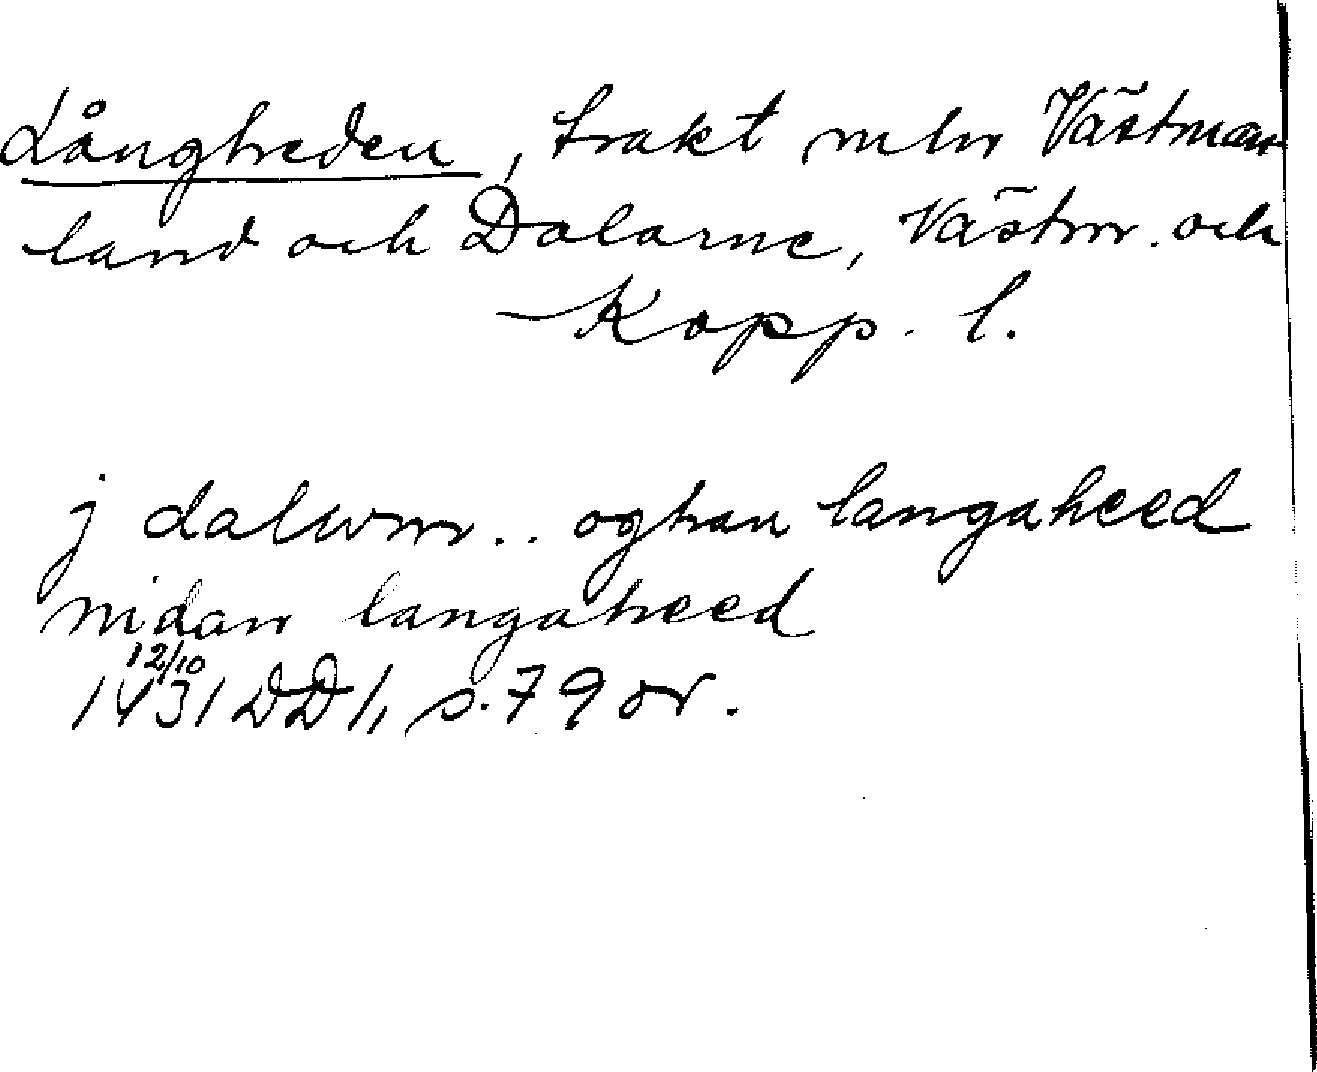 Långheden, trakt mln Västman
land och Dalarne, Västm. och
Kopp. l.
j dalwm .. oghan langaheed
nidan langaheed
12/10
1431 DD 1, s. 79 or.